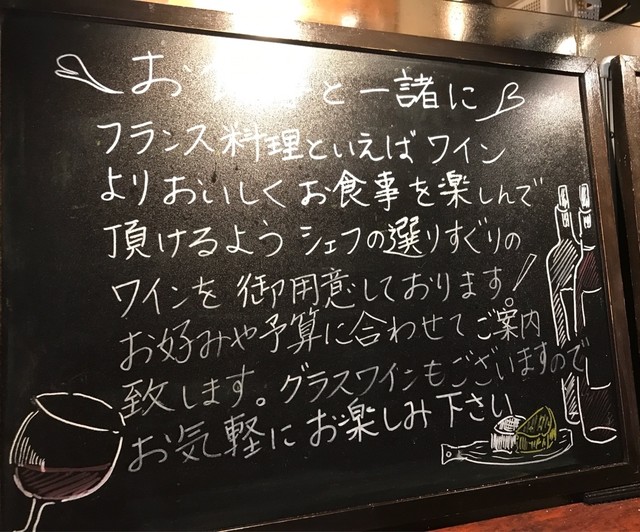 お と一諸に
フランス料理といえばワイン
よりおいしくお食事を楽しんで
頂けるようシェフの選りすぐりの
ワインを御用意しております!
お好みや予算に合わせてご案内
致します。グラスワインもございますので
お気軽にお楽しみ下さい